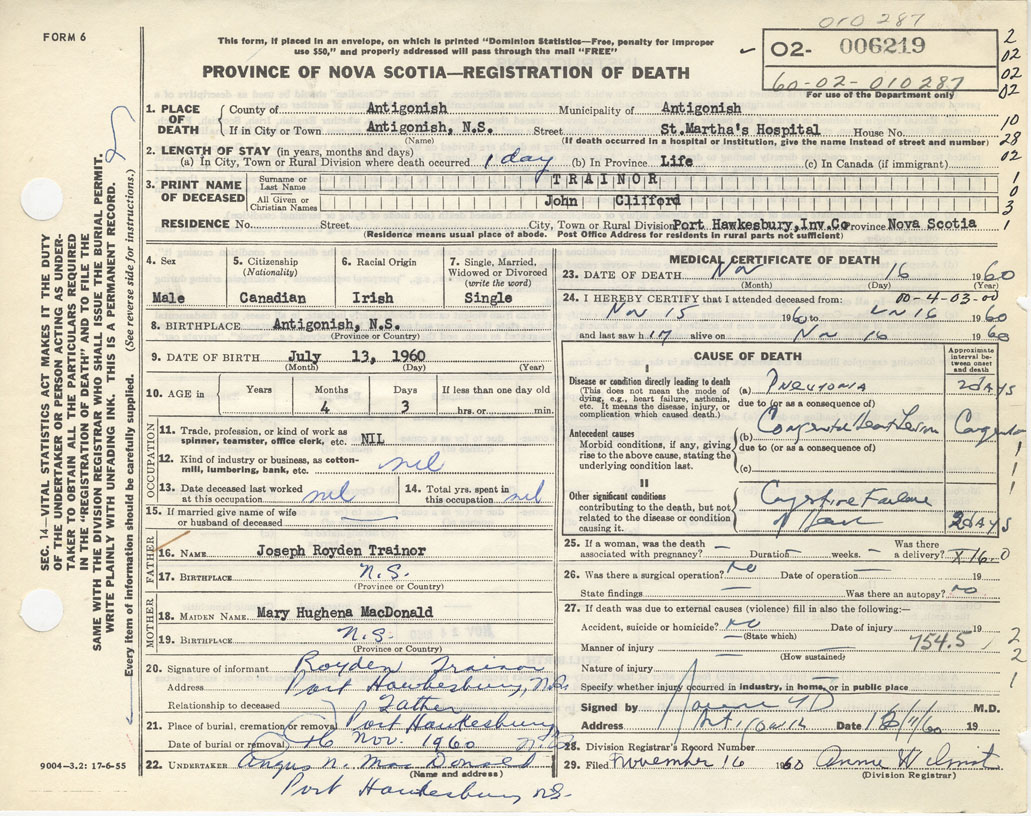 010 287
FORM 6
This form, if placed in an envelope, on which is printed "Dominion Statistics—Free, penalty for improper
use $50," and properly addressed will pass through the mail "FREE"
O2- 006219
60-02-010287
For use of the Department only
PROVINCE OF NOVA SCOTIA—REGISTRATION OF DEATH
2
02
02
02
10
28
02
1
0
3
1
1. PLACE OF DEATH County of Antigonish Municipality of Antigonish
If in City or Town Antigonish, N.S. Street St.Martha's Hospital House No.
(Name) (If death occurred in a hospital or institution, give the name instead of street and number)
2. LENGTH OF STAY (in years, months and days)
(a) In City, Town or Rural Division where death occurred 1 day (b) In Province Life (c) In Canada (if immigrant)
3. PRINT NAME OF DECEASED Surname or Last Name TRAINOR
All Given or Christian Names John Clifford
RESIDENCE No. Street City, Town or Rural Division Port Hawkesbury,Inv.Co Province Nova Scotia
(Residence means usual place of abode. Post Office Address for residents in rural parts not sufficient)
SEC. 14—VITAL STATISTICS ACT MAKES IT THE DUTY
OF THE UNDERTAKER OR PERSON ACTING AS UNDER-
TAKER TO OBTAIN ALL THE PARTICULARS REQUIRED
IN THE "REGISTRATION OF DEATH" AND TO FILE THE
SAME WITH THE DIVISION REGISTRAR WHO SHALL ISSUE THE BURIAL PERMIT.
WRITE PLAINLY WITH UNFADING INK. THIS IS A PERMANENT RECORD.
Every item of information should be carefully supplied. (See reverse side for instructions.)
2
4. Sex 5. Citizenship (Nationality) 6. Racial Origin 7. Single, Married, Widowed or Divorced (write the word)
Male Canadian Irish Single
8. BIRTHPLACE Antigonish, N.S.
(Province or Country)
9. DATE OF BIRTH July 13, 1960
(Month) (Day) (Year)
10. AGE in Years Months Days If less than one day old
4 3 hrs. or min.
OCCUPATION
11. Trade, profession, or kind of work as
spinner, teamster, office clerk, etc. NIL
12. Kind of industry or business, as cotton-
mill, lumbering, bank, etc. nil
13. Date deceased last worked at this occupation nil 14. Total yrs. spent in this occupation nil
15. If married give name of wife
or husband of deceased —
FATHER
16. NAME Joseph Royden Trainor
17. BIRTHPLACE N.S.
(Province or Country)
MOTHER
18. MAIDEN NAME Mary Hughena MacDonald
19. BIRTHPLACE N.S.
(Province or Country)
20. Signature of informant Royden Trainor
Address Port Hawkesbury, N.S.
Relationship to deceased Father
21. Place of burial, cremation or removal Port Hawkesbury
Date of burial or removal 16 Nov. 1960 N.S.
22. UNDERTAKER Angus N. MacDonald
(Name and address)
Port Hawkesbury N.S.
9004—3.2: 17-6-55
MEDICAL CERTIFICATE OF DEATH
23. DATE OF DEATH Nov 16 1960
(Month) (Day) (Year)
24. I HEREBY CERTIFY that I attended deceased from: 00-4-03-00
Nov 15 1960 to 16 1960
and last saw h alive on Nov 16 1960
CAUSE OF DEATH
Approximate interval between onset and death
I
Disease or condition directly leading to death
(This does not mean the mode of
dying, e.g., heart failure, asthenia,
etc. It means the disease, injury, or
complication which caused death.)
(a) Pneumonia 2 days
due to (or as a consequence of)
Antecedent causes
Morbid conditions, if any, giving
rise to the above cause, stating the
underlying condition last.
(b) Congenital Heart Lesion
due to (or as a consequence of)
(c)
II
Other significant conditions
contributing to the death, but not
related to the disease or condition
causing it.
Congestive Failure
2 days
25. If a woman, was the death associated with pregnancy? — Duration — weeks. — Was there a delivery? X16.0
26. Was there a surgical operation? No Date of operation — 19
State findings — Was there an autopsy? No
27. If death was due to external causes (violence) fill in also the following:—
Accident, suicide or homicide? No Date of injury 19
(State which)
Manner of injury — 754.5
(How sustained)
Nature of injury
Specify whether injury occurred in industry, in home, or in public place
1
1
1
2
2
1
Signed by M.D.
Address Date 19
28. Division Registrar's Record Number
29. Filed November 16 1960
(Division Registrar)